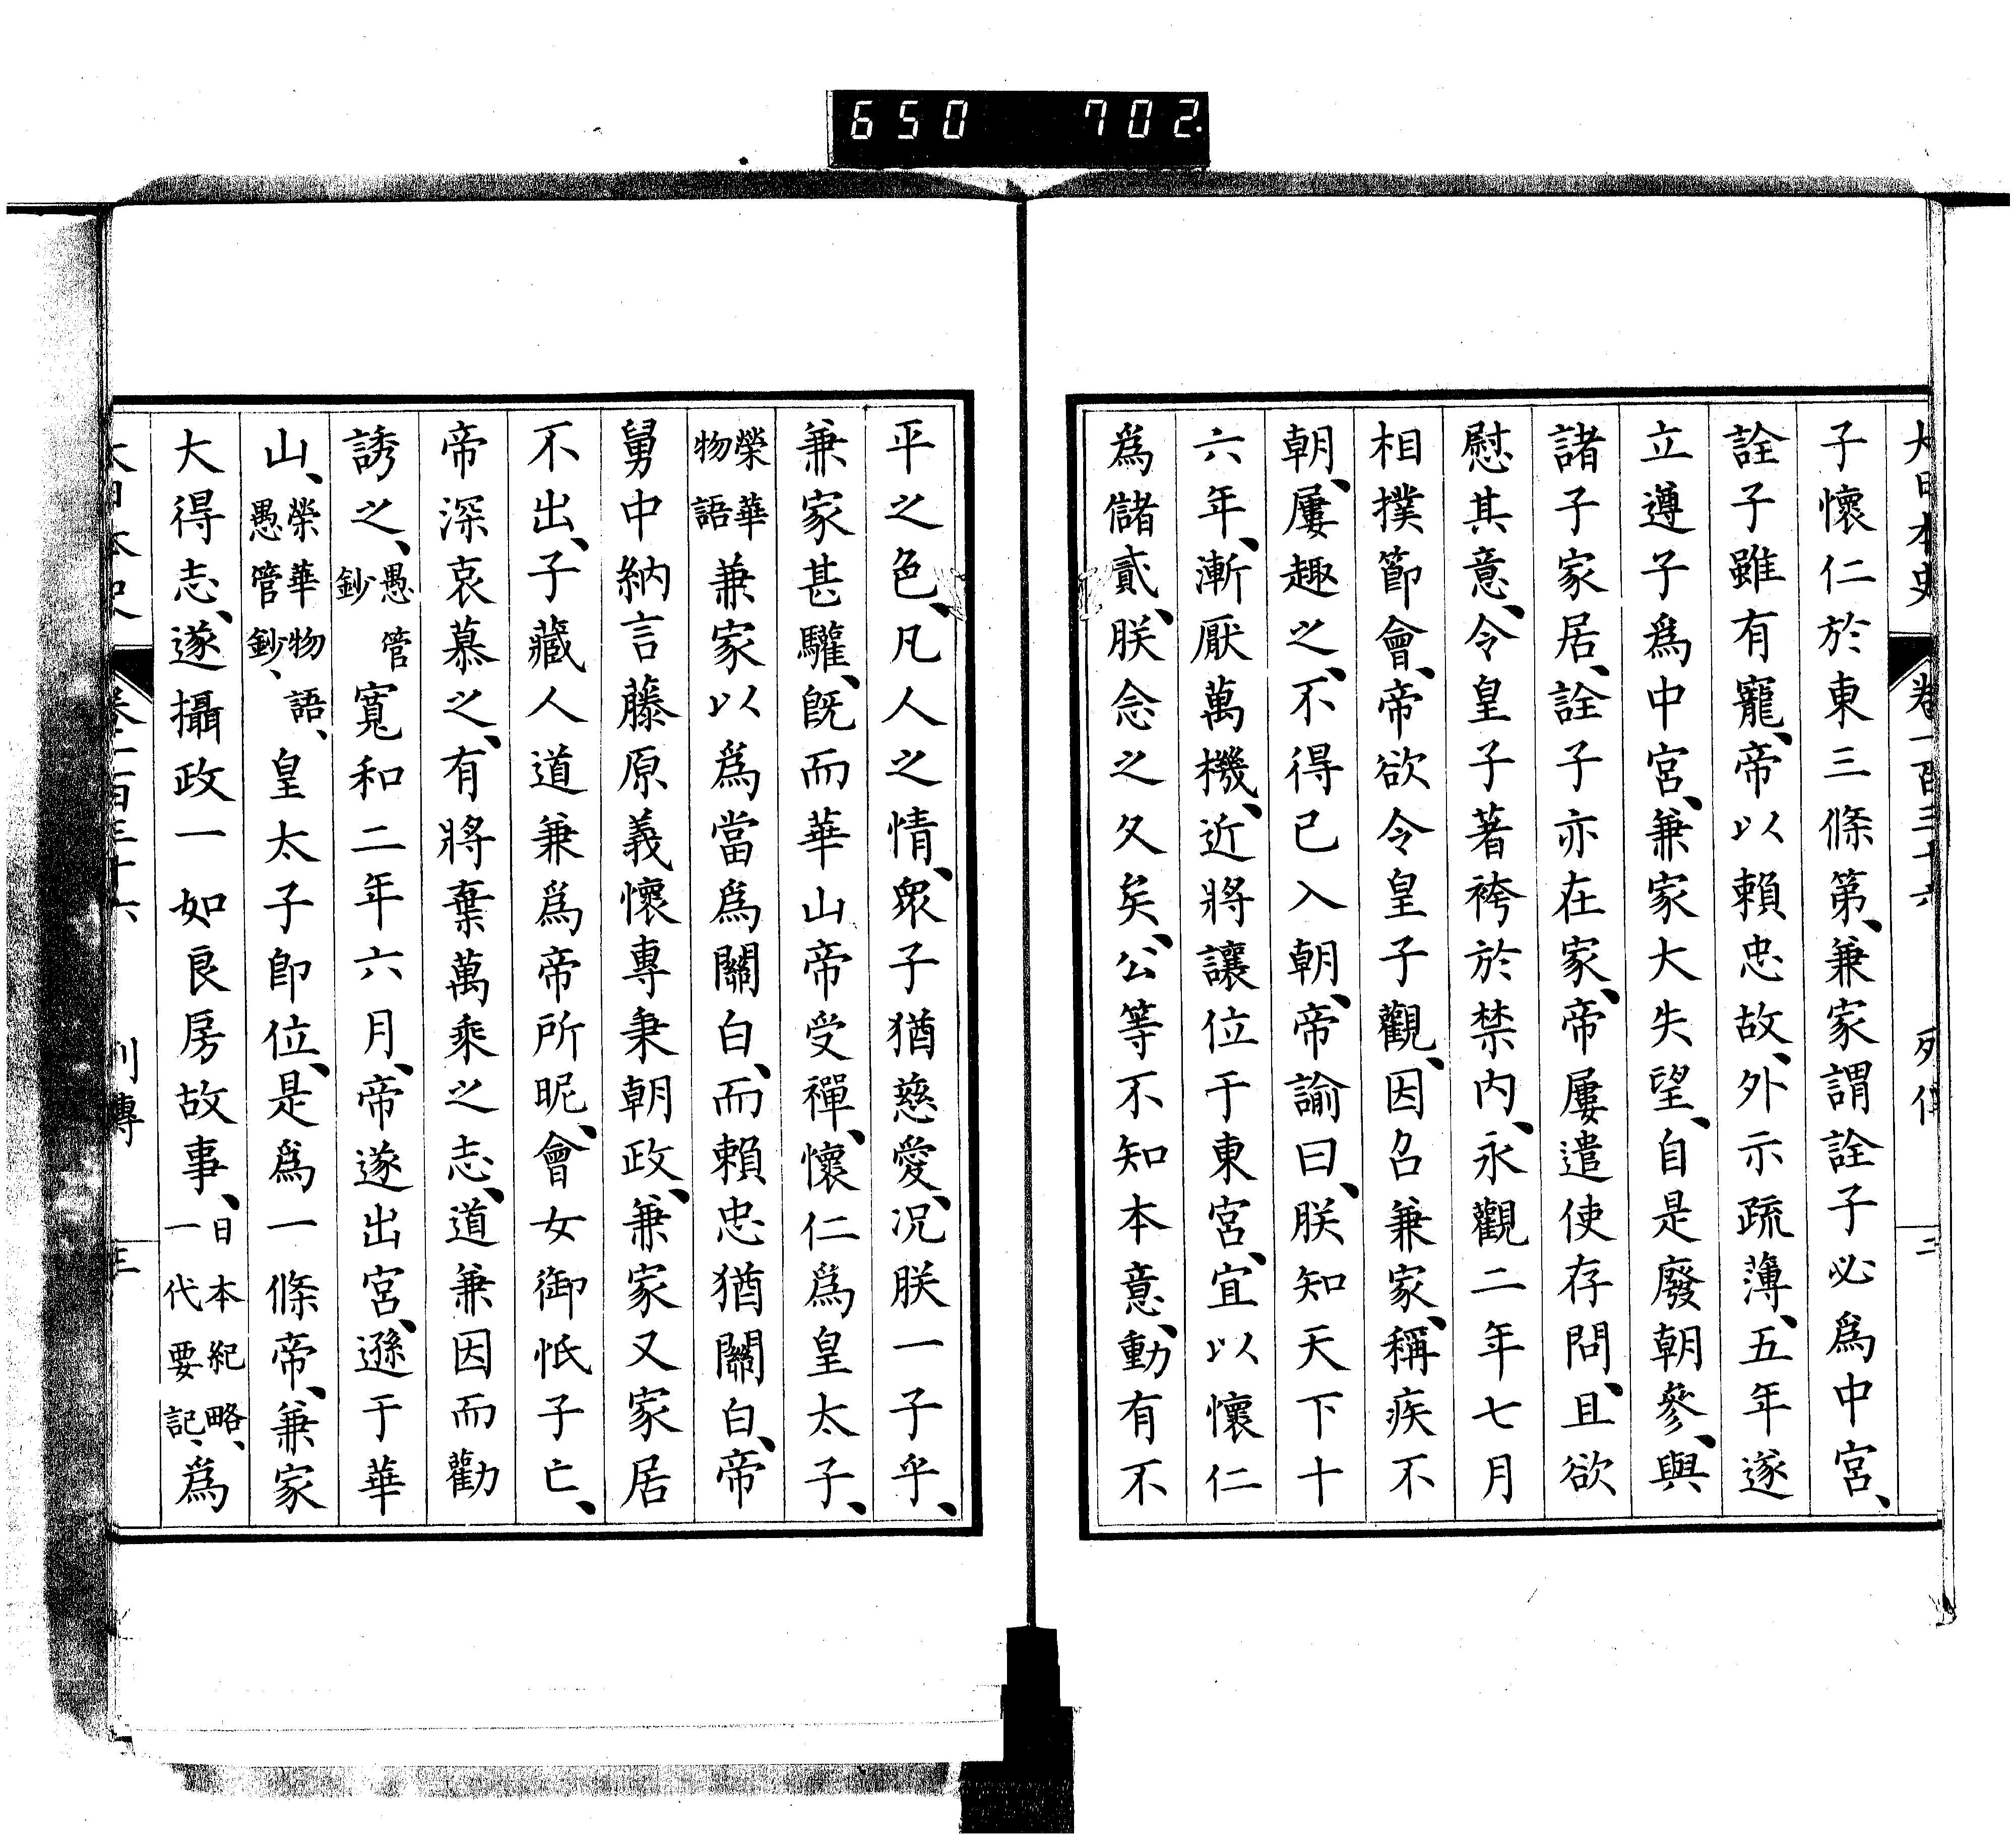 650 702
大日本史 卷一百三十六 列傳 二
子懷仁於東三條第、兼家謂詮子必爲中宮、
詮子雖有寵、帝以賴忠故、外示疏薄、五年遂
立遵子爲中宮、兼家大失望、自是廢朝參、與
諸子家居、詮子亦在家、帝屢遣使存問、且欲
慰其意、令皇子著袴於禁内、永觀二年七月
相撲節會、帝欲令皇子觀、因召兼家、稱疾不
朝、屢趣之、不得已入朝、帝諭曰、朕知天下十
六年、漸厭萬機、近將讓位于東宮、宜以懷仁
爲儲貳、朕念之久矣、公等不知本意、動有不
平之色、凡人之情、衆子猶慈愛、况朕一子乎、
兼家甚驩、旣而華山帝受禪、懷仁爲皇太子、
榮華物語兼家以爲當爲關白、而賴忠猶關白、帝
舅中納言藤原義懷專秉朝政、兼家又家居
不出、子藏人道兼爲帝所昵、會女御忯子亡、
帝深哀慕之、有將棄萬乘之志、道兼因而勸
誘之、愚管鈔寬和二年六月、帝遂出宮、遜于華
山、榮華物語、愚管鈔、皇太子卽位、是爲一條帝、兼家
大得志、遂攝政一如良房故事、日本紀略、一代要記、爲
大日本史 卷一百三十六 列傳 三